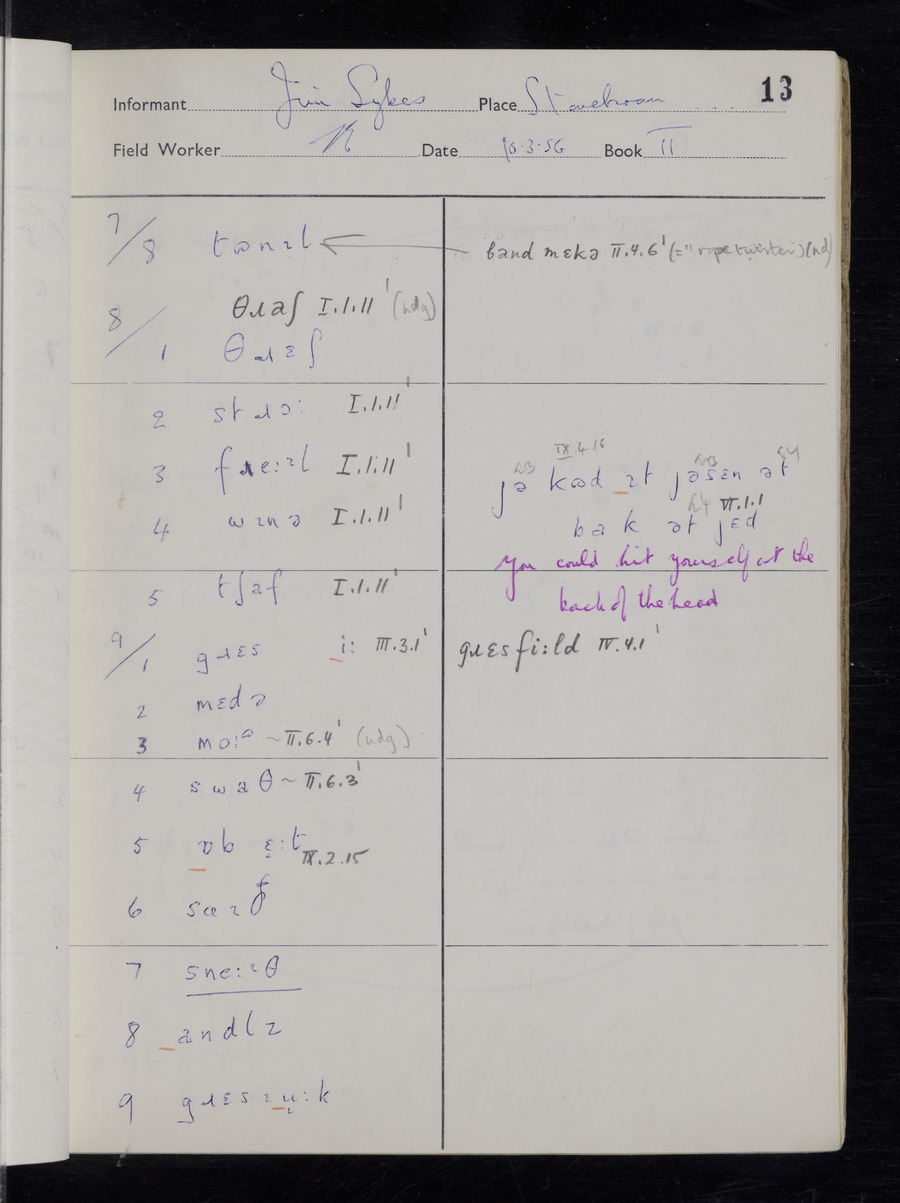 13
Informant Jim Sykes Place
Field Worker Date 10.3.56 Book II
7/8 tɷnɪl band mɛkə II.4.6' (="rope twister") (nd)
8/ θɹaʃ I.1.11' (ndg)
1 θɹɛʃ
2 stɹɔ: I.1.11'
3 fɹe:ɪl I.1.11'
4 wɪnə I.1.11'
IX.4.16
jə kɷd ɪt jəsɛn ət
VI.1.1
bak ət jɛd
You could hit yourself at the
5 tʃaf I.1.11'
back of the head
9/1 gɹɛs i: III.3.1' gɹɛsfi:ld IV.4.1'
2 mɛdə
3 mɔ:ə ~ II.6.4' (ndg.)
4 swaθ ~ II.6.3'
5 ɒb ɛ:t IX.2.15
6 saɪð
7 sne:ɪθ
8 andlz
9 gɹɛs ɪu:k